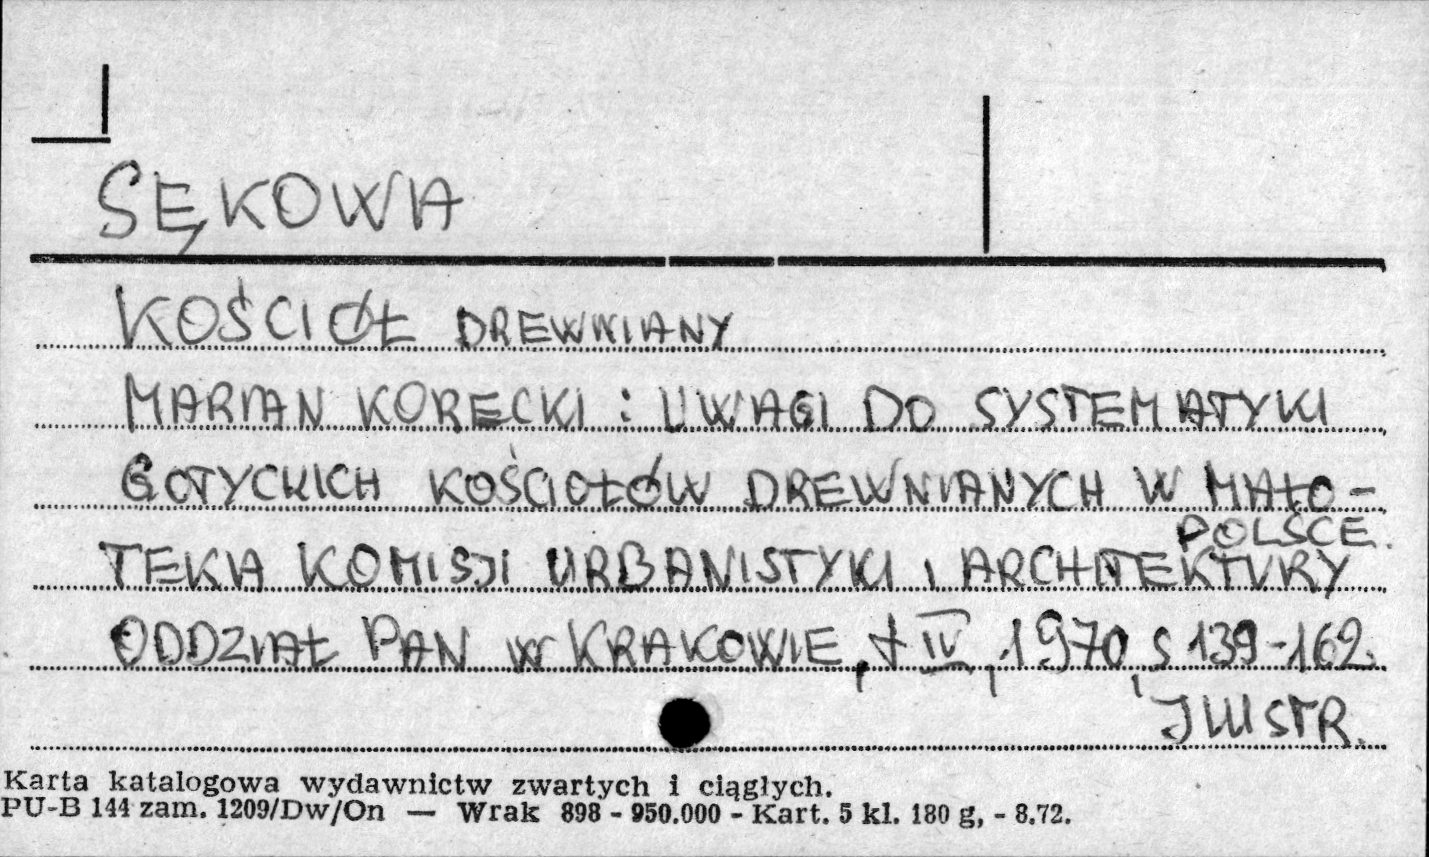 SĘKOWA
KOŚCIÓŁ DREWNIANY
MARIAN KORECKI : UWAGI DO SYSTEMATYKI
GOTYCKICH KOŚCIOŁÓW DREWNIANYCH W MAŁO-
POLSCE.
TEKA KOMISJI URBANISTYKI I ARCHITEKTURY
ODDZIAŁ PAN W KRAKOWIE, t IV, 1970, s 139-162.
ILUSTR.
Karta katalogowa wydawnictw zwartych i ciągłych.
PU-B 144 zam. 1209/Dw/On — Wrak 898 - 950.000 - Kart. 5 kl. 180 g, - 8.72.